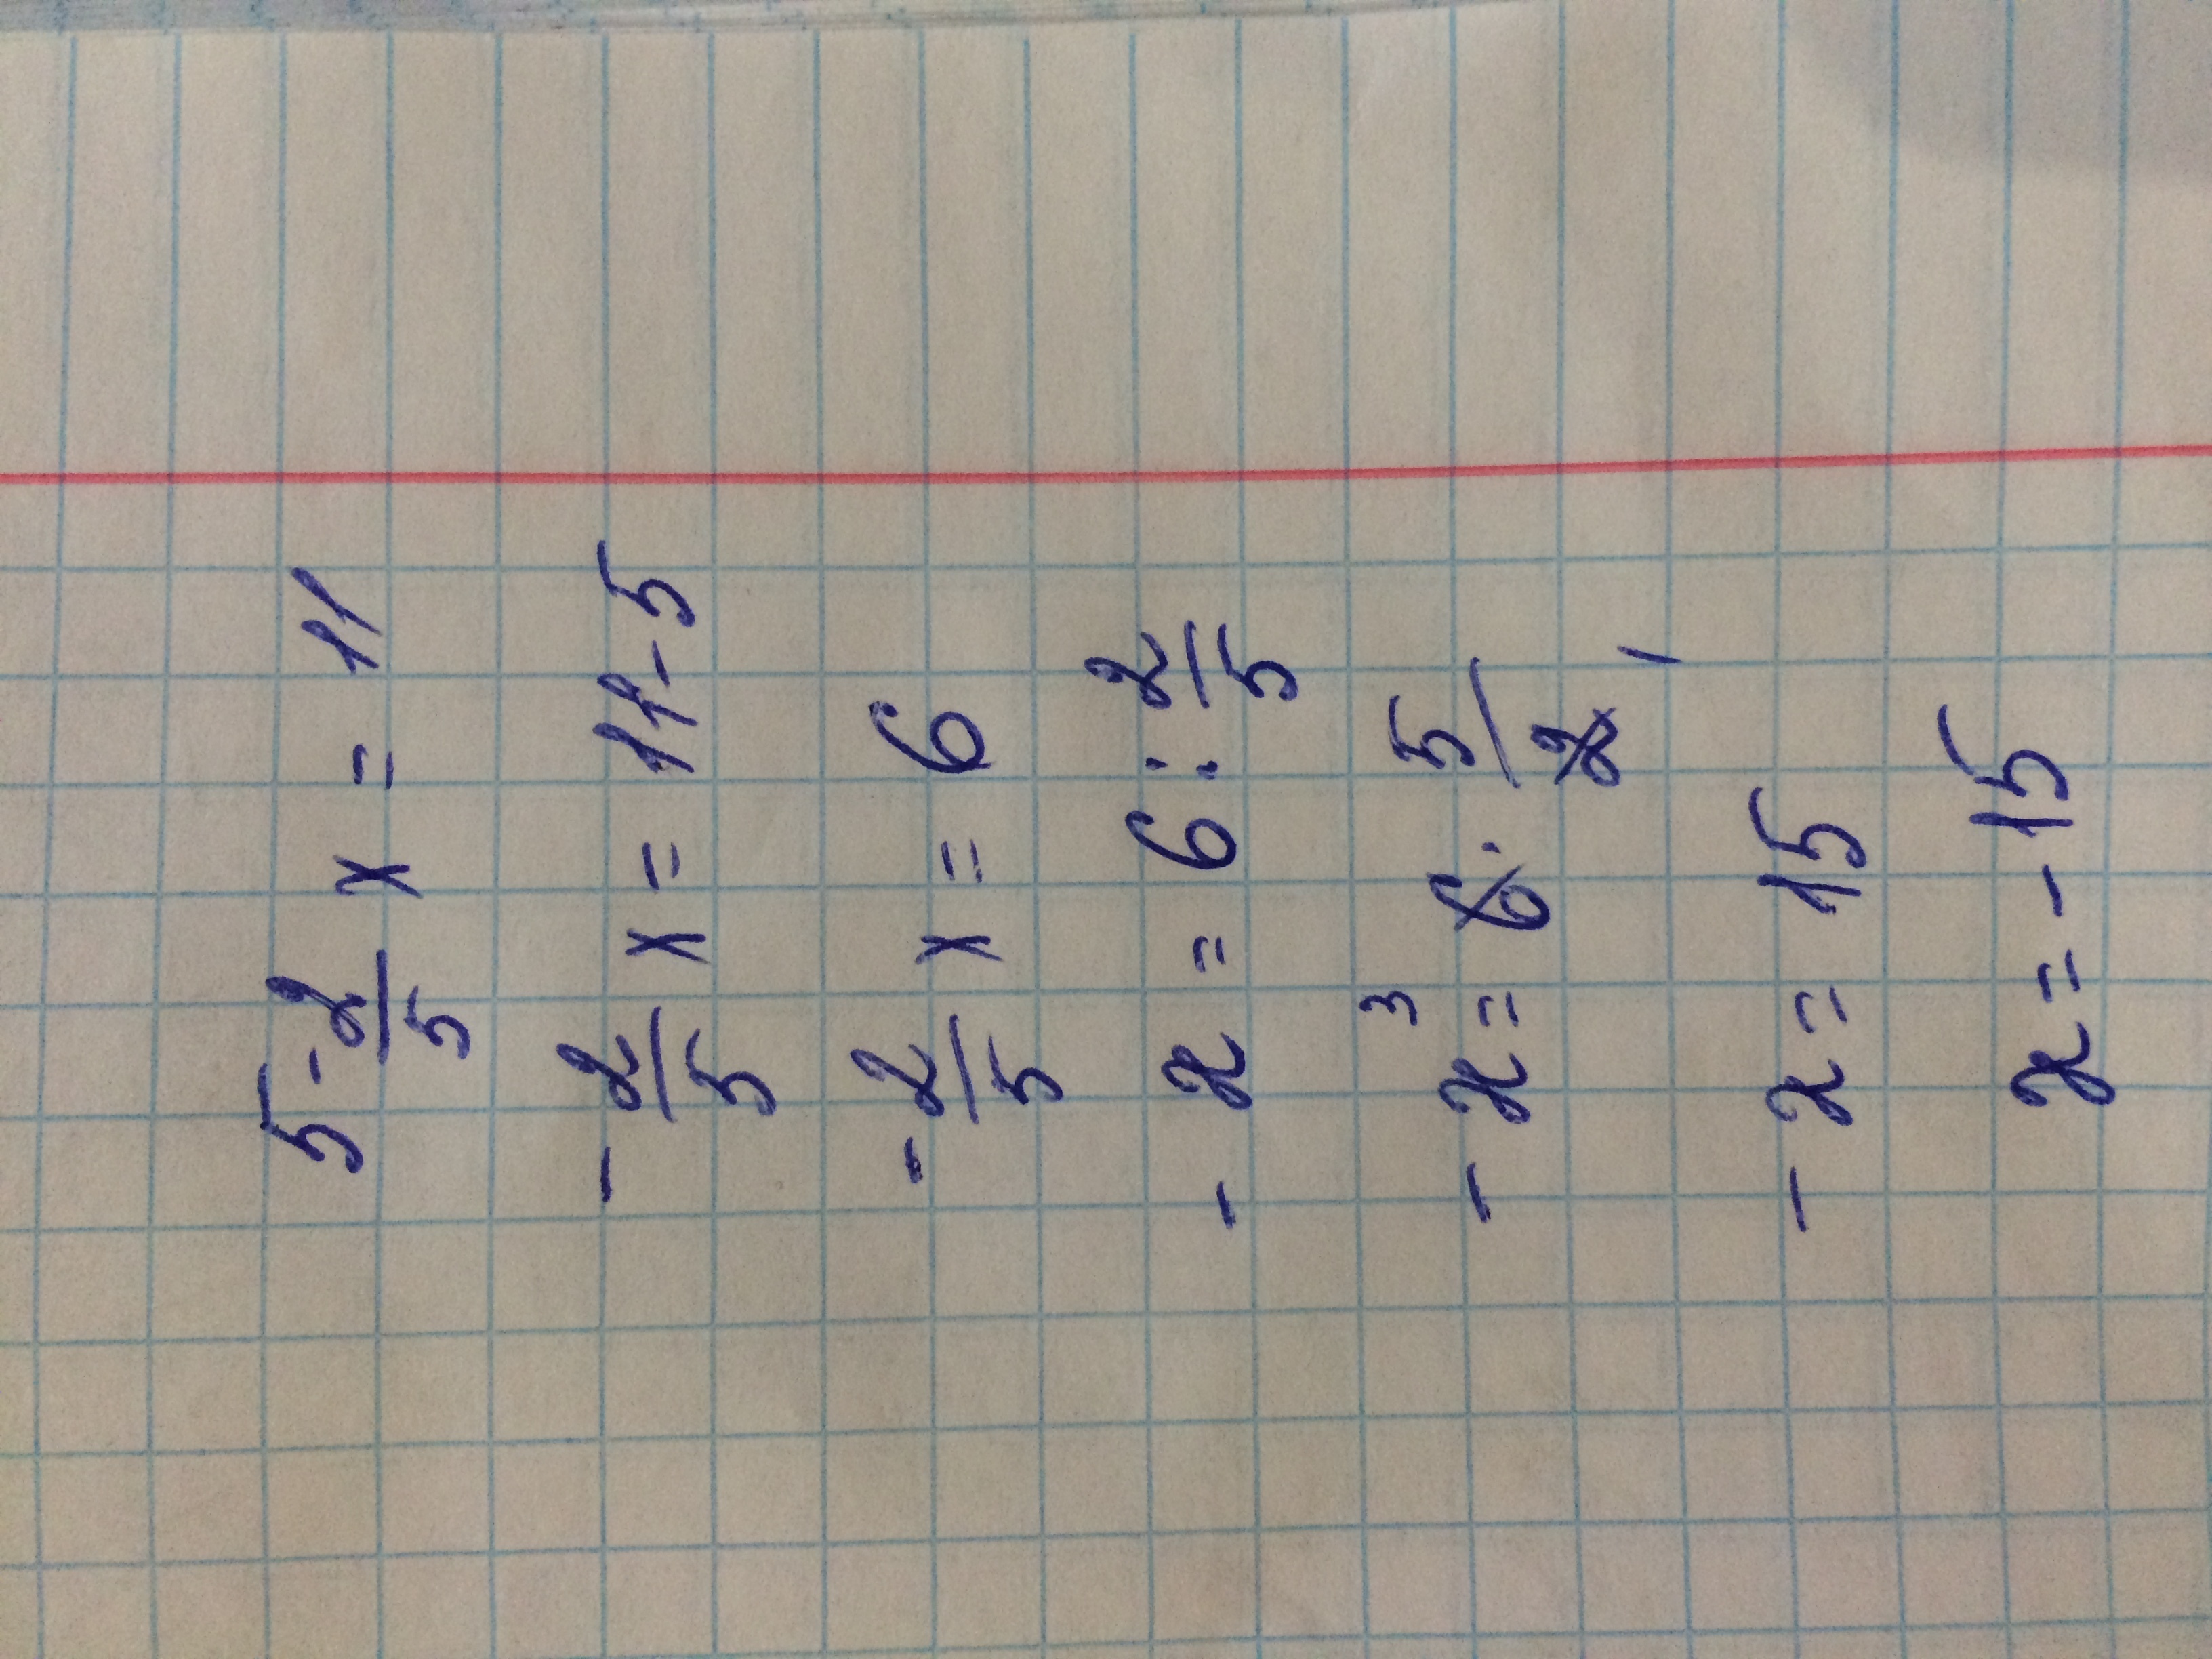 5 - 2/5 x = 11
- 2/5 x = 11 - 5
- 2/5 x = 6
- x = 6 : 2/5
- x = 6³ · 5/2 1
- x = 15
x = - 15